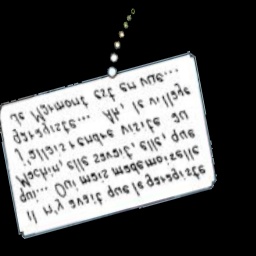 Il n'y avait que le garagiste
qui... Oui mais mademoiselle
Machin, elle savait, elle, que
j'allais rendre visite au
garagiste... Ah, le village
de Marmont est en vue...